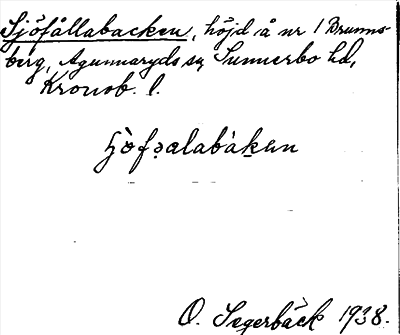 Sjöfållabacken, höjd å nr 1 Brunns-
berg, Agunnaryds sn, Sunnerbo hd,
Kronob. l.
O. Segerbäck 1938.